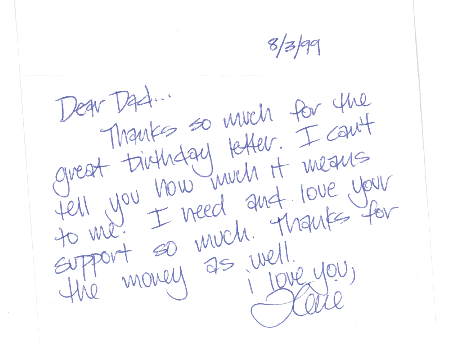 8/3/99
Dear Dad...
Thanks so much for the
great birthday letter. I can't
tell you how much it means
to me. I need and love your
support so much. Thanks for
the money as well.
i love you,